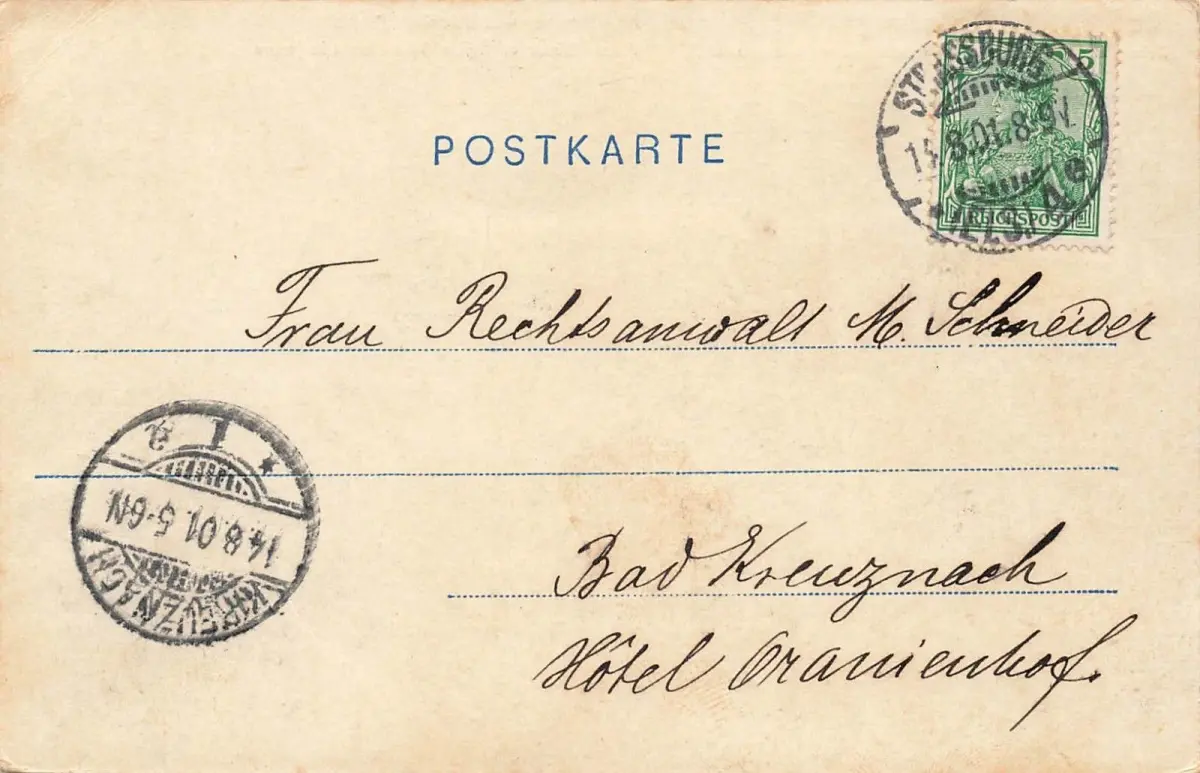 5 5
REICHSPOST
STRASSBURG
14.8.01.8-9V.
(ELS.) 4 e
POSTKARTE
Frau Rechtsanwalt M. Schneider
KREUZNACH
14.8.01.5-6N.
* 1 a
Bad Kreuznach
Hôtel Oranienhof.